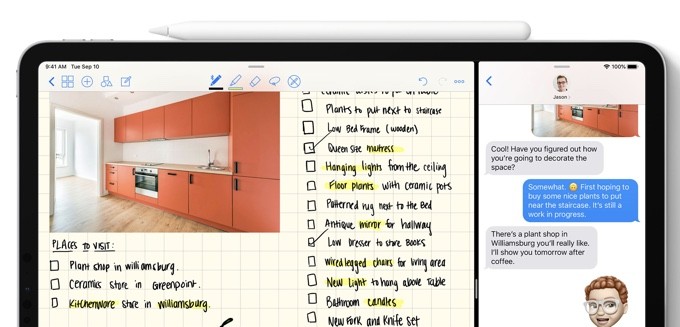 9:41 AM Tue Sep 10
100%
Plants to put next to staircase
Low Bed Frame (wooden)
Queen size mattress
Hanging lights from the ceiling
Floor plants with ceramic pots
Patterned rug next to the bed
Antique mirror for hallway
Low Dresser to store Books
Wired legged chairs for living area
New Light to hang above Table
Bathroom candles
New Fork and Knife Set
PLACES TO VISIT:
Plant shop in williamsburg.
Ceramics store in Greenpoint.
Kitchenware store in williamsburg.
Jason
Cool! Have you figured out how
you're going to decorate the
space?
Somewhat. First hoping to
buy some nice plants to put
near the staircase. It's still
a work in progress.
There's a plant shop in
Williamsburg you'll really like.
I'll show you tomorrow after
coffee.